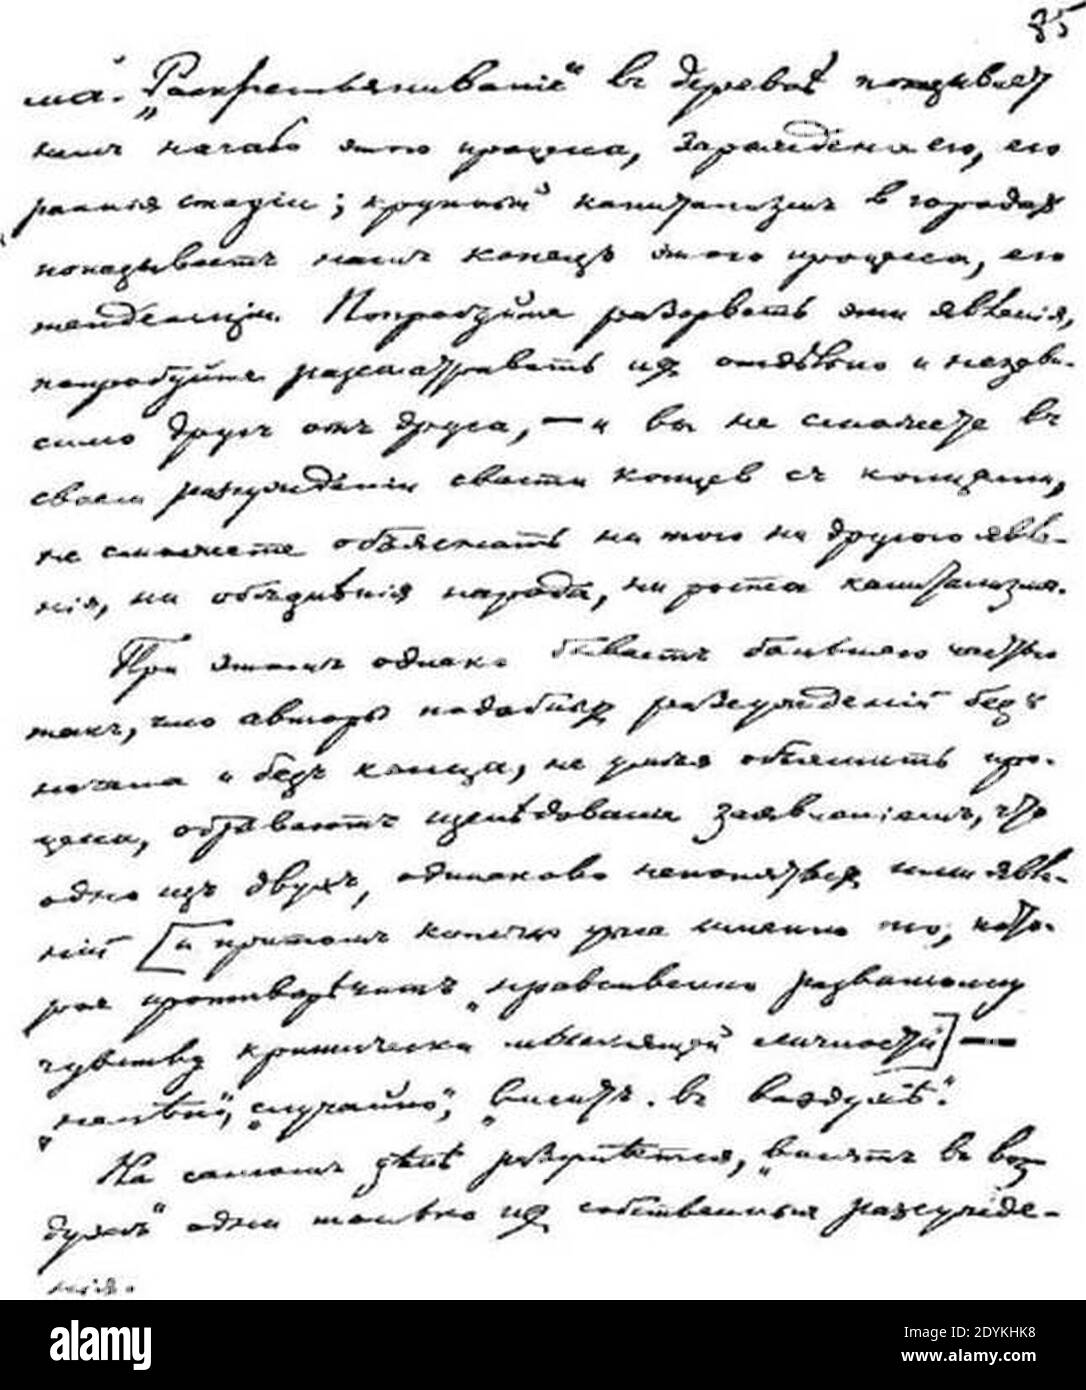 85
ма. „Раскрестьяниваніе“ въ деревнѣ показывает
намъ начало этого процесса, зарожденіе его, его
раннія стадіи; крупный капитализмъ в городах
показываетъ намъ конецъ этого процесса, его
тенденціи. Попробуйте разорвать эти явленія,
попробуйте разсматривать их отдѣльно и незави-
симо другъ отъ друга, — и вы не сможете въ
своем разсужденіи свести концов съ концами,
не сможете объяснить ни того ни другого явле-
нія, ни обѣднѣнія народа, ни роста капитализма.
При этомъ однако бываетъ большею частью
такъ, что авторы подобных разсужденій безъ
начала и безъ конца, не умѣя объяснить про-
цесса, обрываютъ изслѣдованіе заявленіемъ, что
одно изъ двухъ, одинаково непонятных ими явле-
ній [и притомъ конечно уже именно то, кото-
рое противорѣчитъ „нравственно развитому
чувству критически мыслящей личности“] —
„нелѣпо“, „случайно“, „виситъ въ воздухѣ“.
На самомъ дѣлѣ разумѣется, „висятъ въ воз-
духѣ“ одни только их собственныя разсужде-
нія.
alamy
Image ID: 2DYKHK8
www.alamy.com